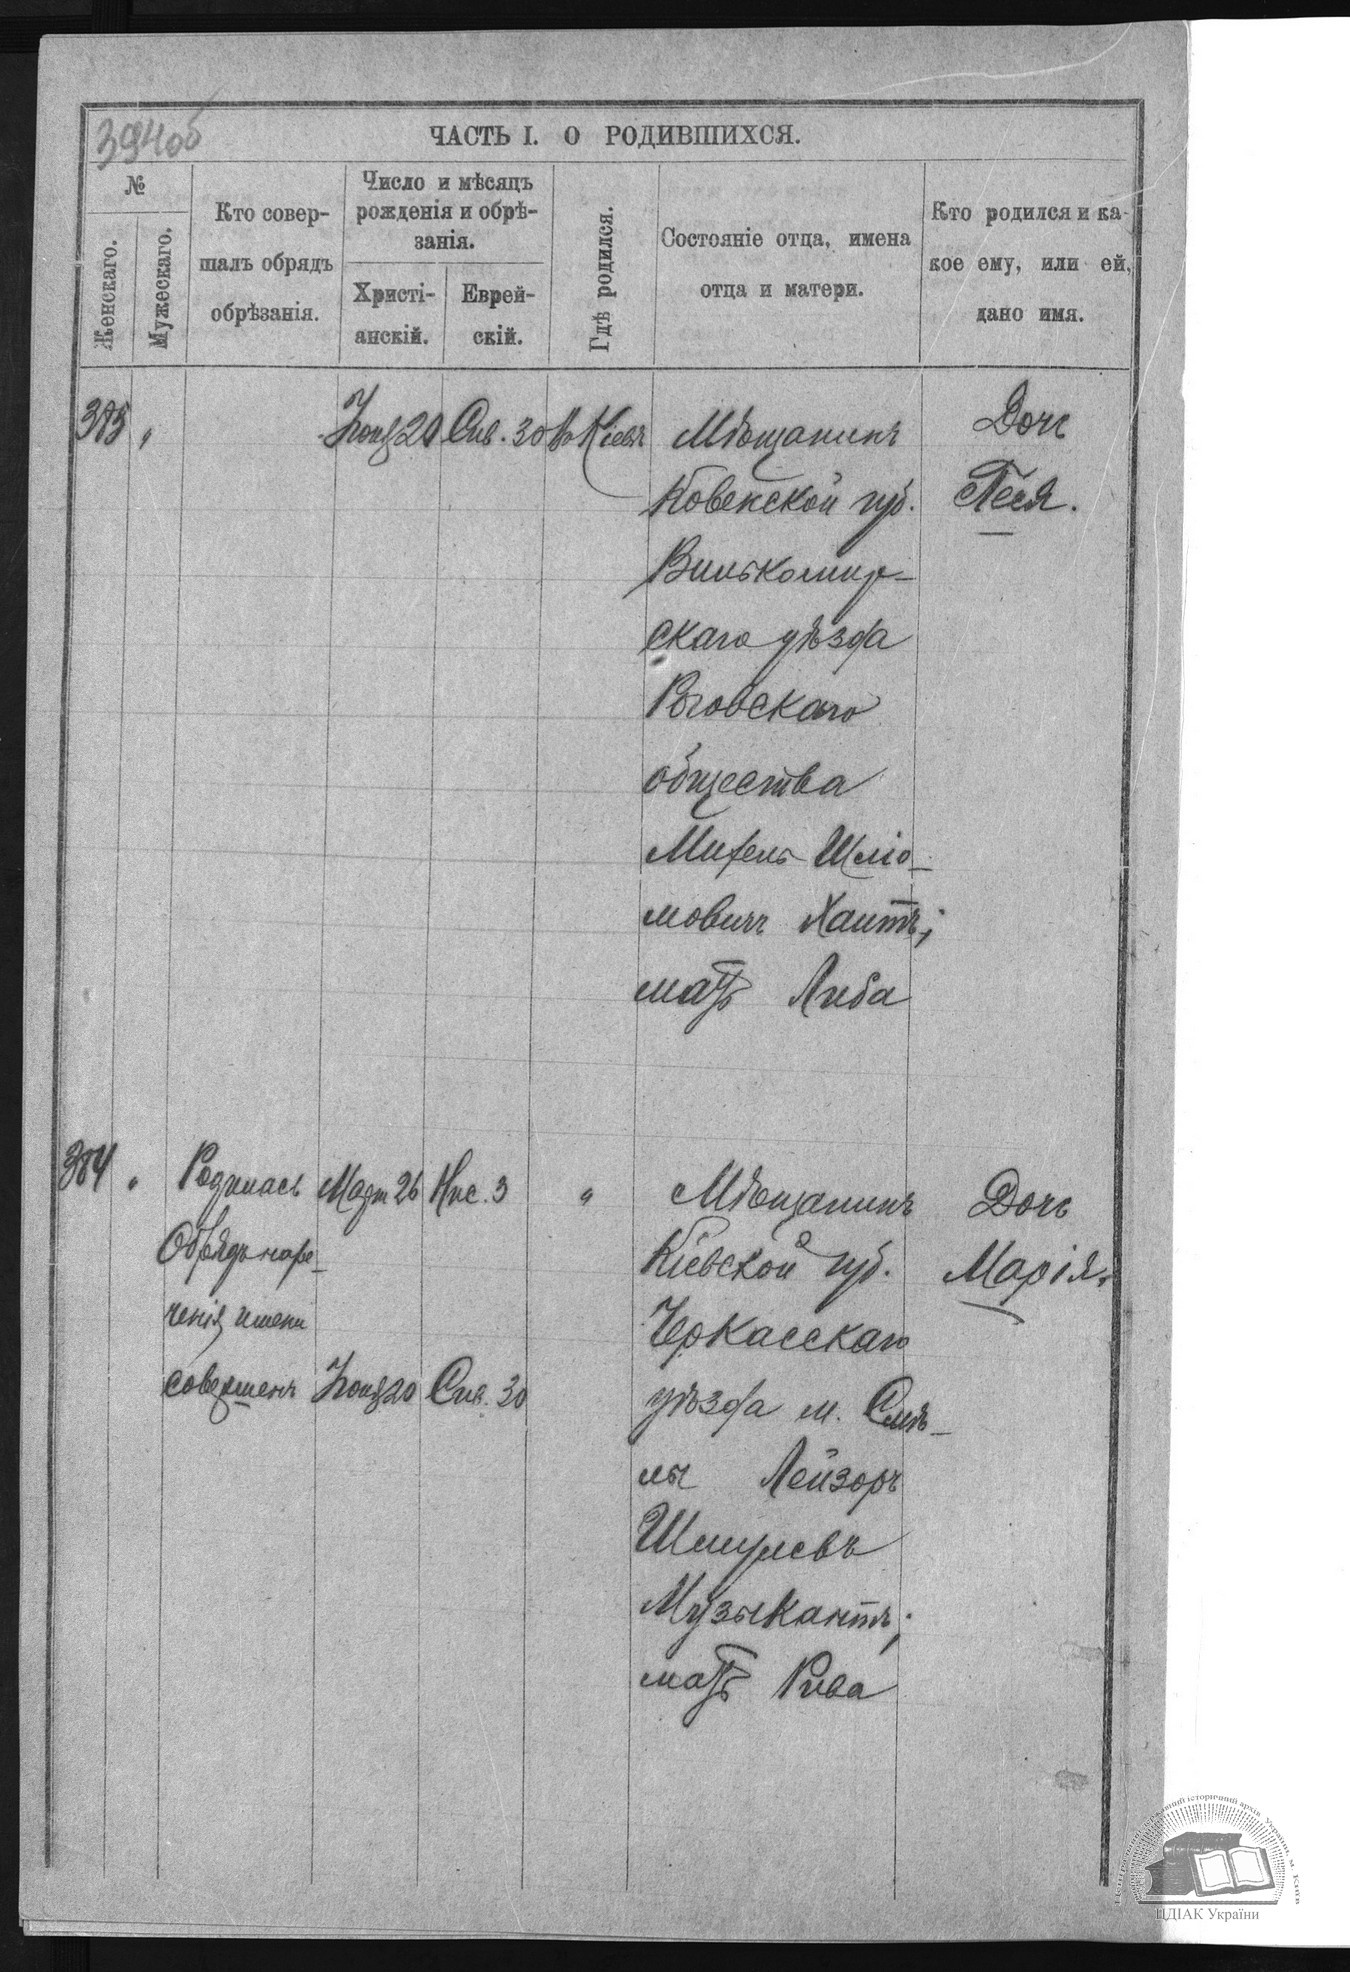 394об
ЧАСТЬ I. О РОДИВШИХСЯ.
№
Женскаго.
Мужескаго.
Кто совер-
шалъ обрядъ
обрѣзанія.
Число и мѣсяцъ
рожденія и обрѣ-
занія.
Христі-
анскій.
Еврей-
скій.
Гдѣ родился.
Состояніе отца, имена
отца и матери.
Кто родился и ка-
кое ему, или ей,
дано имя.
"
20
30
Мѣщанинъ
Ковенской губ.
Вилькомир-
скаго уѣзда
Роговскаго
общества
Михель Шліо-
мовичъ
мать Либа
Дочь
Песя.
384 "
Родилась
Обрядъ наре-
ченія имени
совершенъ
Март 26
20
Нис. 3
30
"
Мѣщанинъ
Кіевской губ.
Черкасскаго
уѣзда м. Смѣ-
лы Лейзоръ
Шмулевъ
Музыкантъ;
мать Рива
Дочь
Марія.
ЦДІАК України